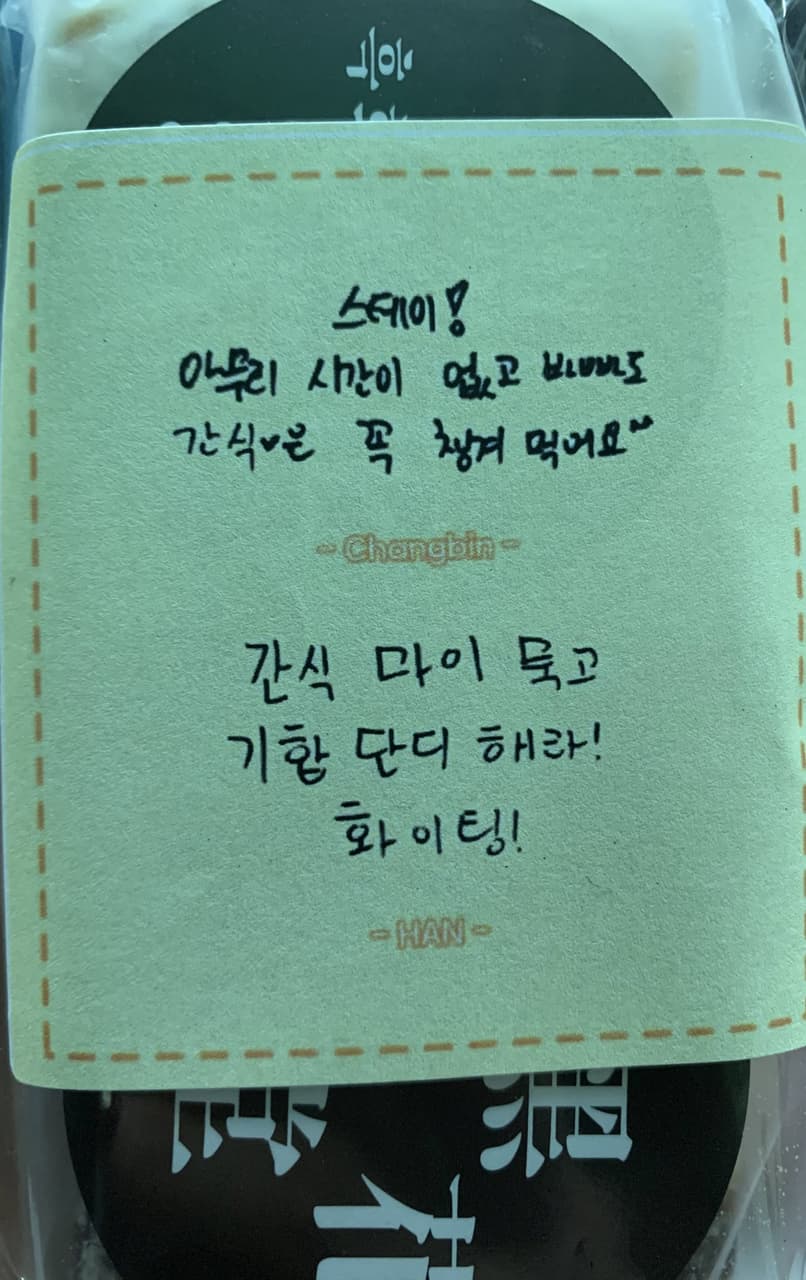 스테이!
아무리 시간이 없고 바빠도
간식♥은 꼭 챙겨 먹어요~
- Changbin -
간식 마이 묵고
기합 단디 해라!
화이팅!
- HAN -